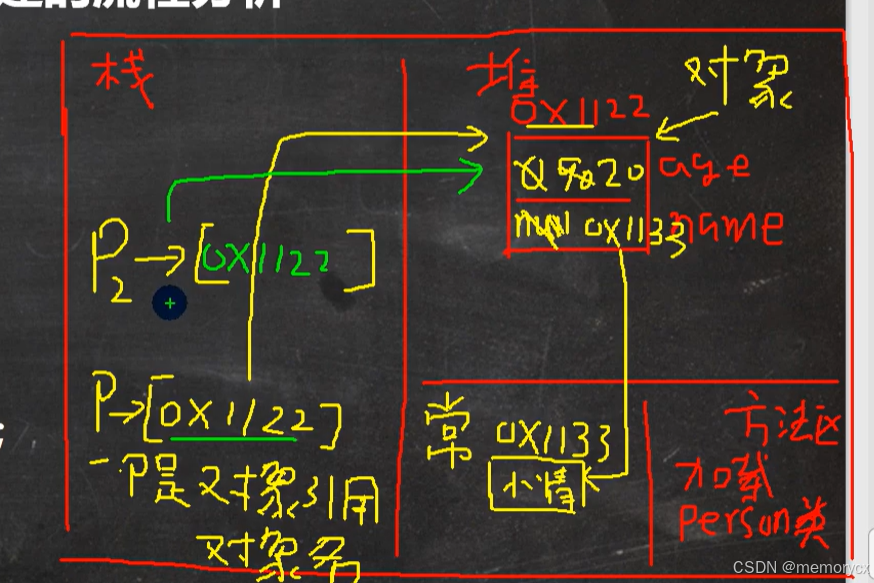 建的流程分析
栈
堆
对象
0X1122
0 90 20 age
null 0X1133 name
P2→[0X1122]
P→[0X1122]
一P是对象引用
对象名
常
0X1133
小倩
方法区
加载
person类
CSDN @memorycx